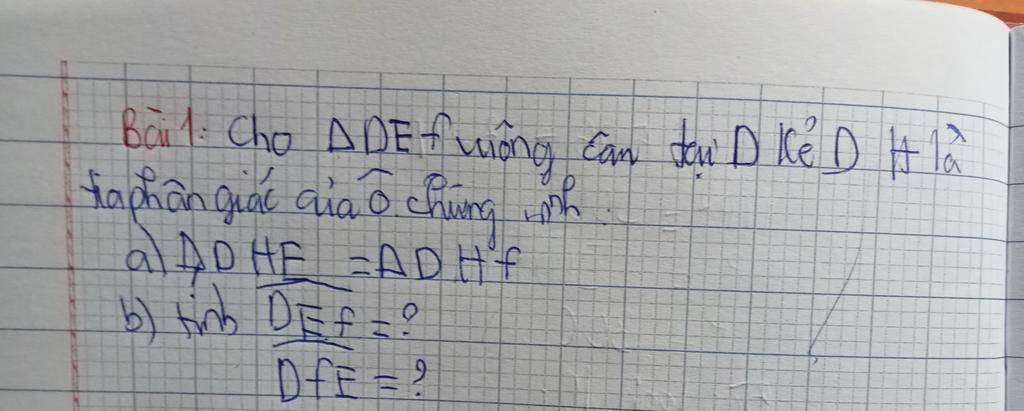 Bài 1: Cho ΔDEf vuông cân tại D Kẻ DH là
tia phân giác của Ô chứng minh.
a) ΔDHE = ΔDHf
b) tính DEf = ?
DfE = ?